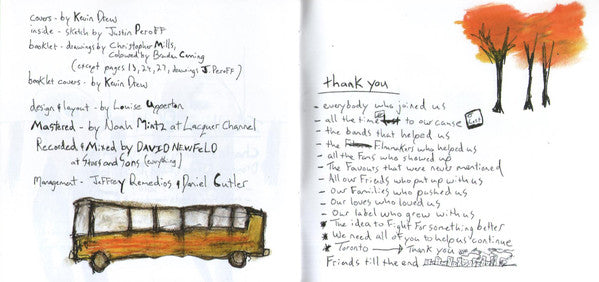 covers - by Kevin Drew
inside - sketch by Justin Peroff
booklet - drawings by Christopher Mills,
Coloured by Brendan Canning
(except pages 13, 24, 27, drawings J. Peroff)
booklet covers - by Kevin Drew
design & layout - by Louise Upperton
Mastered - by Noah Mintz at Lacquer Channel
Recorded & Mixed by DAVID NEWFELD
at Stars and Sons (everything)
Management - Jeffrey Remedios & Daniel Cutler
thank you
- everybody who joined us
- all the time to our cause
- the bands that helped us
- the Filmmakers who helped us
- all the Fans who showed up
- The Favours that were never mentioned
- All our Friends who put up with us
- Our Families who pushed us
- Our loves who loved us
- Our label who grew with us
* The idea to Fight For something better
* We need all of you to help us continue
* Toronto → Thank you
Friends till the end